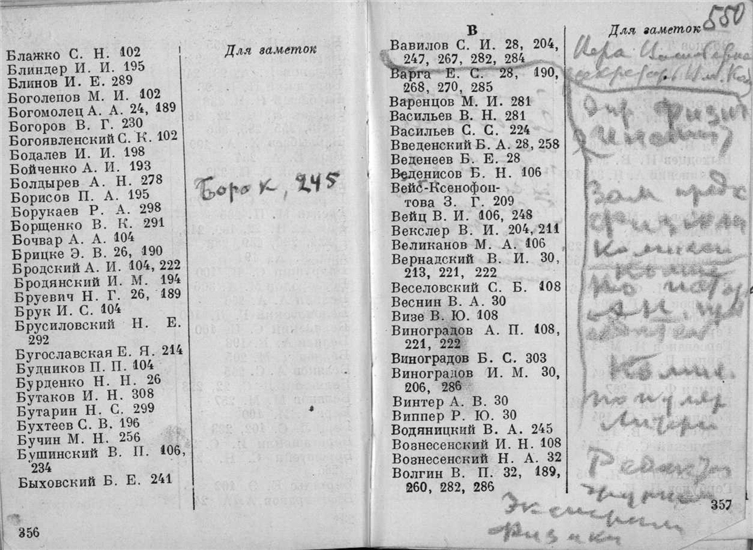 Для заметок
Блажко С. Н. 102
Блиндер И. И. 195
Блинов И. Е. 289
Боголепов М. И. 102
Богомолец А. А. 24, 189
Богоров В. Г. 230
Богоявленский С. К. 102
Бодалев И. И. 198
Бойченко А. И. 193
Болдырев А. Н. 278
Борисов П. А. 195
Борок, 245
Борукаев Р. А. 298
Борщенко В. К. 291
Бочвар А. А. 104
Брицке Э. В. 26, 190
Бродский А. И. 104, 222
Бродянский И. М. 194
Бруевич Н. Г. 26, 189
Брук И. С. 104
Брусиловский Н. Е.
292
Бугославская Е. Я. 214
Будников П. П. 104
Бурденко Н. Н. 26
Бутаков И. Н. 308
Бутарин Н. С. 299
Бухтеев С. В. 196
Бучин М. Н. 256
Бушинский В. П. 106,
234
Быховский Б. Е. 241
356
В
Для заметок
550
Вавилов С. И. 28, 204,
247, 267, 282, 284
Варга Е. С. 28, 190,
268, 270, 285
Варенцов М. И. 281
Васильев В. Н. 281
Васильев С. С. 224
Введенский Б. А. 28, 258
Веденеев Б. Е. 28
Веденисов Б. Н. 106
Вейс-Ксенофон-
това З. Г. 209
Вейц В. И. 106, 248
Векслер В. И. 204, 211
Великанов М. А. 106
Вернадский В. И. 30,
213, 221, 222
Веселовский С. Б. 108
Веснин В. А. 30
Визе В. Ю. 108
Виноградов А. П. 108,
221, 222
Виноградов Б. С. 303
Виноградов И. М. 30,
206, 286
Винтер А. В. 30
Виппер Р. Ю. 30
Водяницкий В. А. 245
Вознесевский И. Н. 108
Вознесенский Н. А. 32
Волгин В. П. 32, 189,
260, 282, 286
секретарь
Дир физич
Зам пред
Комиссии
по истор
АН,
Комис.
популяр
Литера
физики
357